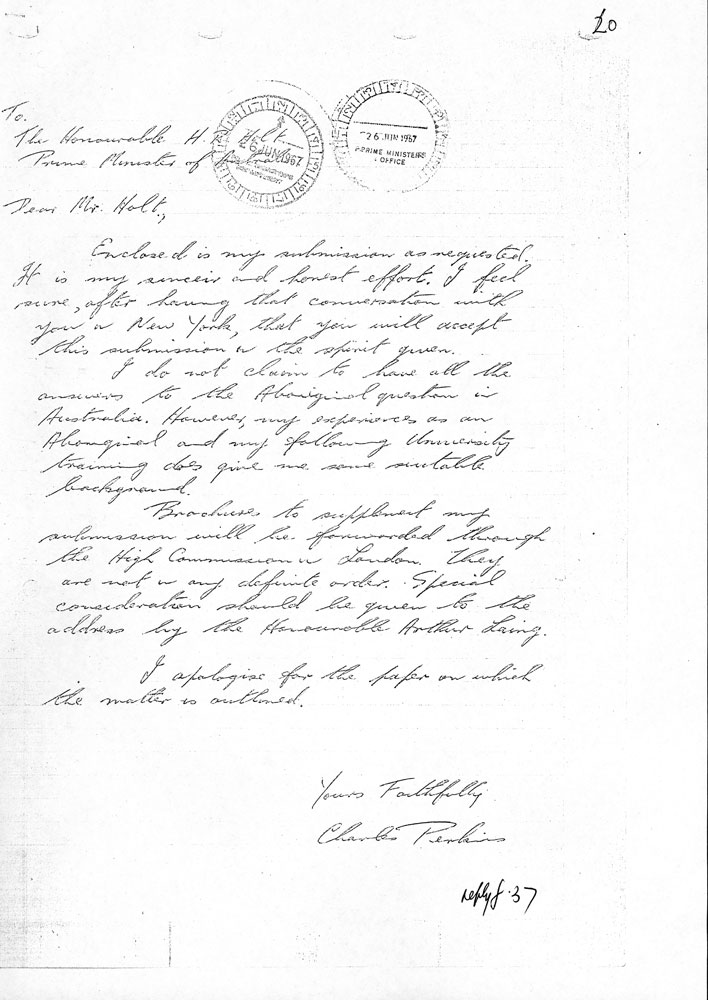 20
To.
The Honourable H. Holt
Prime Minister of Australia
26 JUN 1967
26 JUN 1967
PRIME MINISTERS
OFFICE
Dear Mr. Holt.,
Enclosed is my submission as requested.
It is my sinceir and honest effort. I feel
sure, after having that conversation with
you in New York, that you will accept
this submission in the spirit given.
I do not claim to have all the
answers to the Aboriginal question in
Australia. However, my experiences as an
Aboriginal and my following University
training does give me some suitable
background.
Brochures to supplement my
submission will be forwarded through
the High Commission in London. They
are not in any definite order. Special
consideration should be given to the
address by the Honourable Arthur Laing.
I apologise for the paper on which
the matter is outlined.
Yours Faithfully
Charles Perkins
reply f. 37